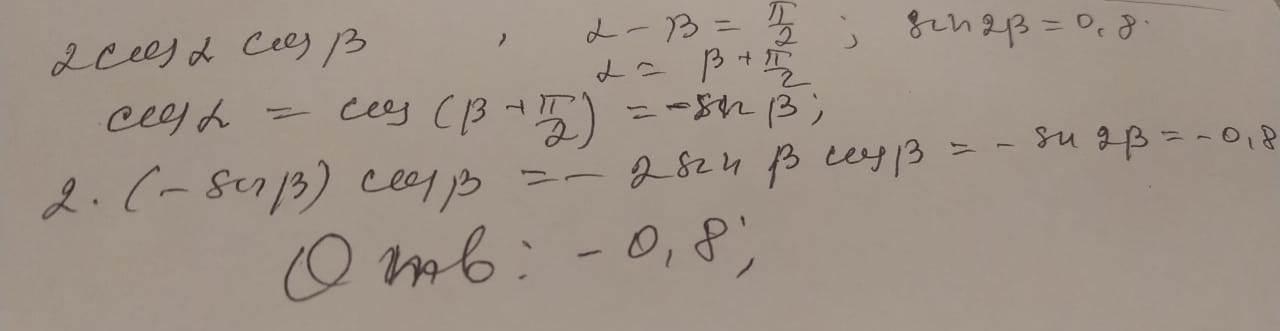 2cos α cos β , α - β = π/2 ; sin 2β = 0,8.
α = β + π/2
cos α = cos (β + π/2) = -sin β;
2. (- sin β) cos β = - 2 sin β cos β = - sin 2β = - 0,8
Отв: - 0,8;